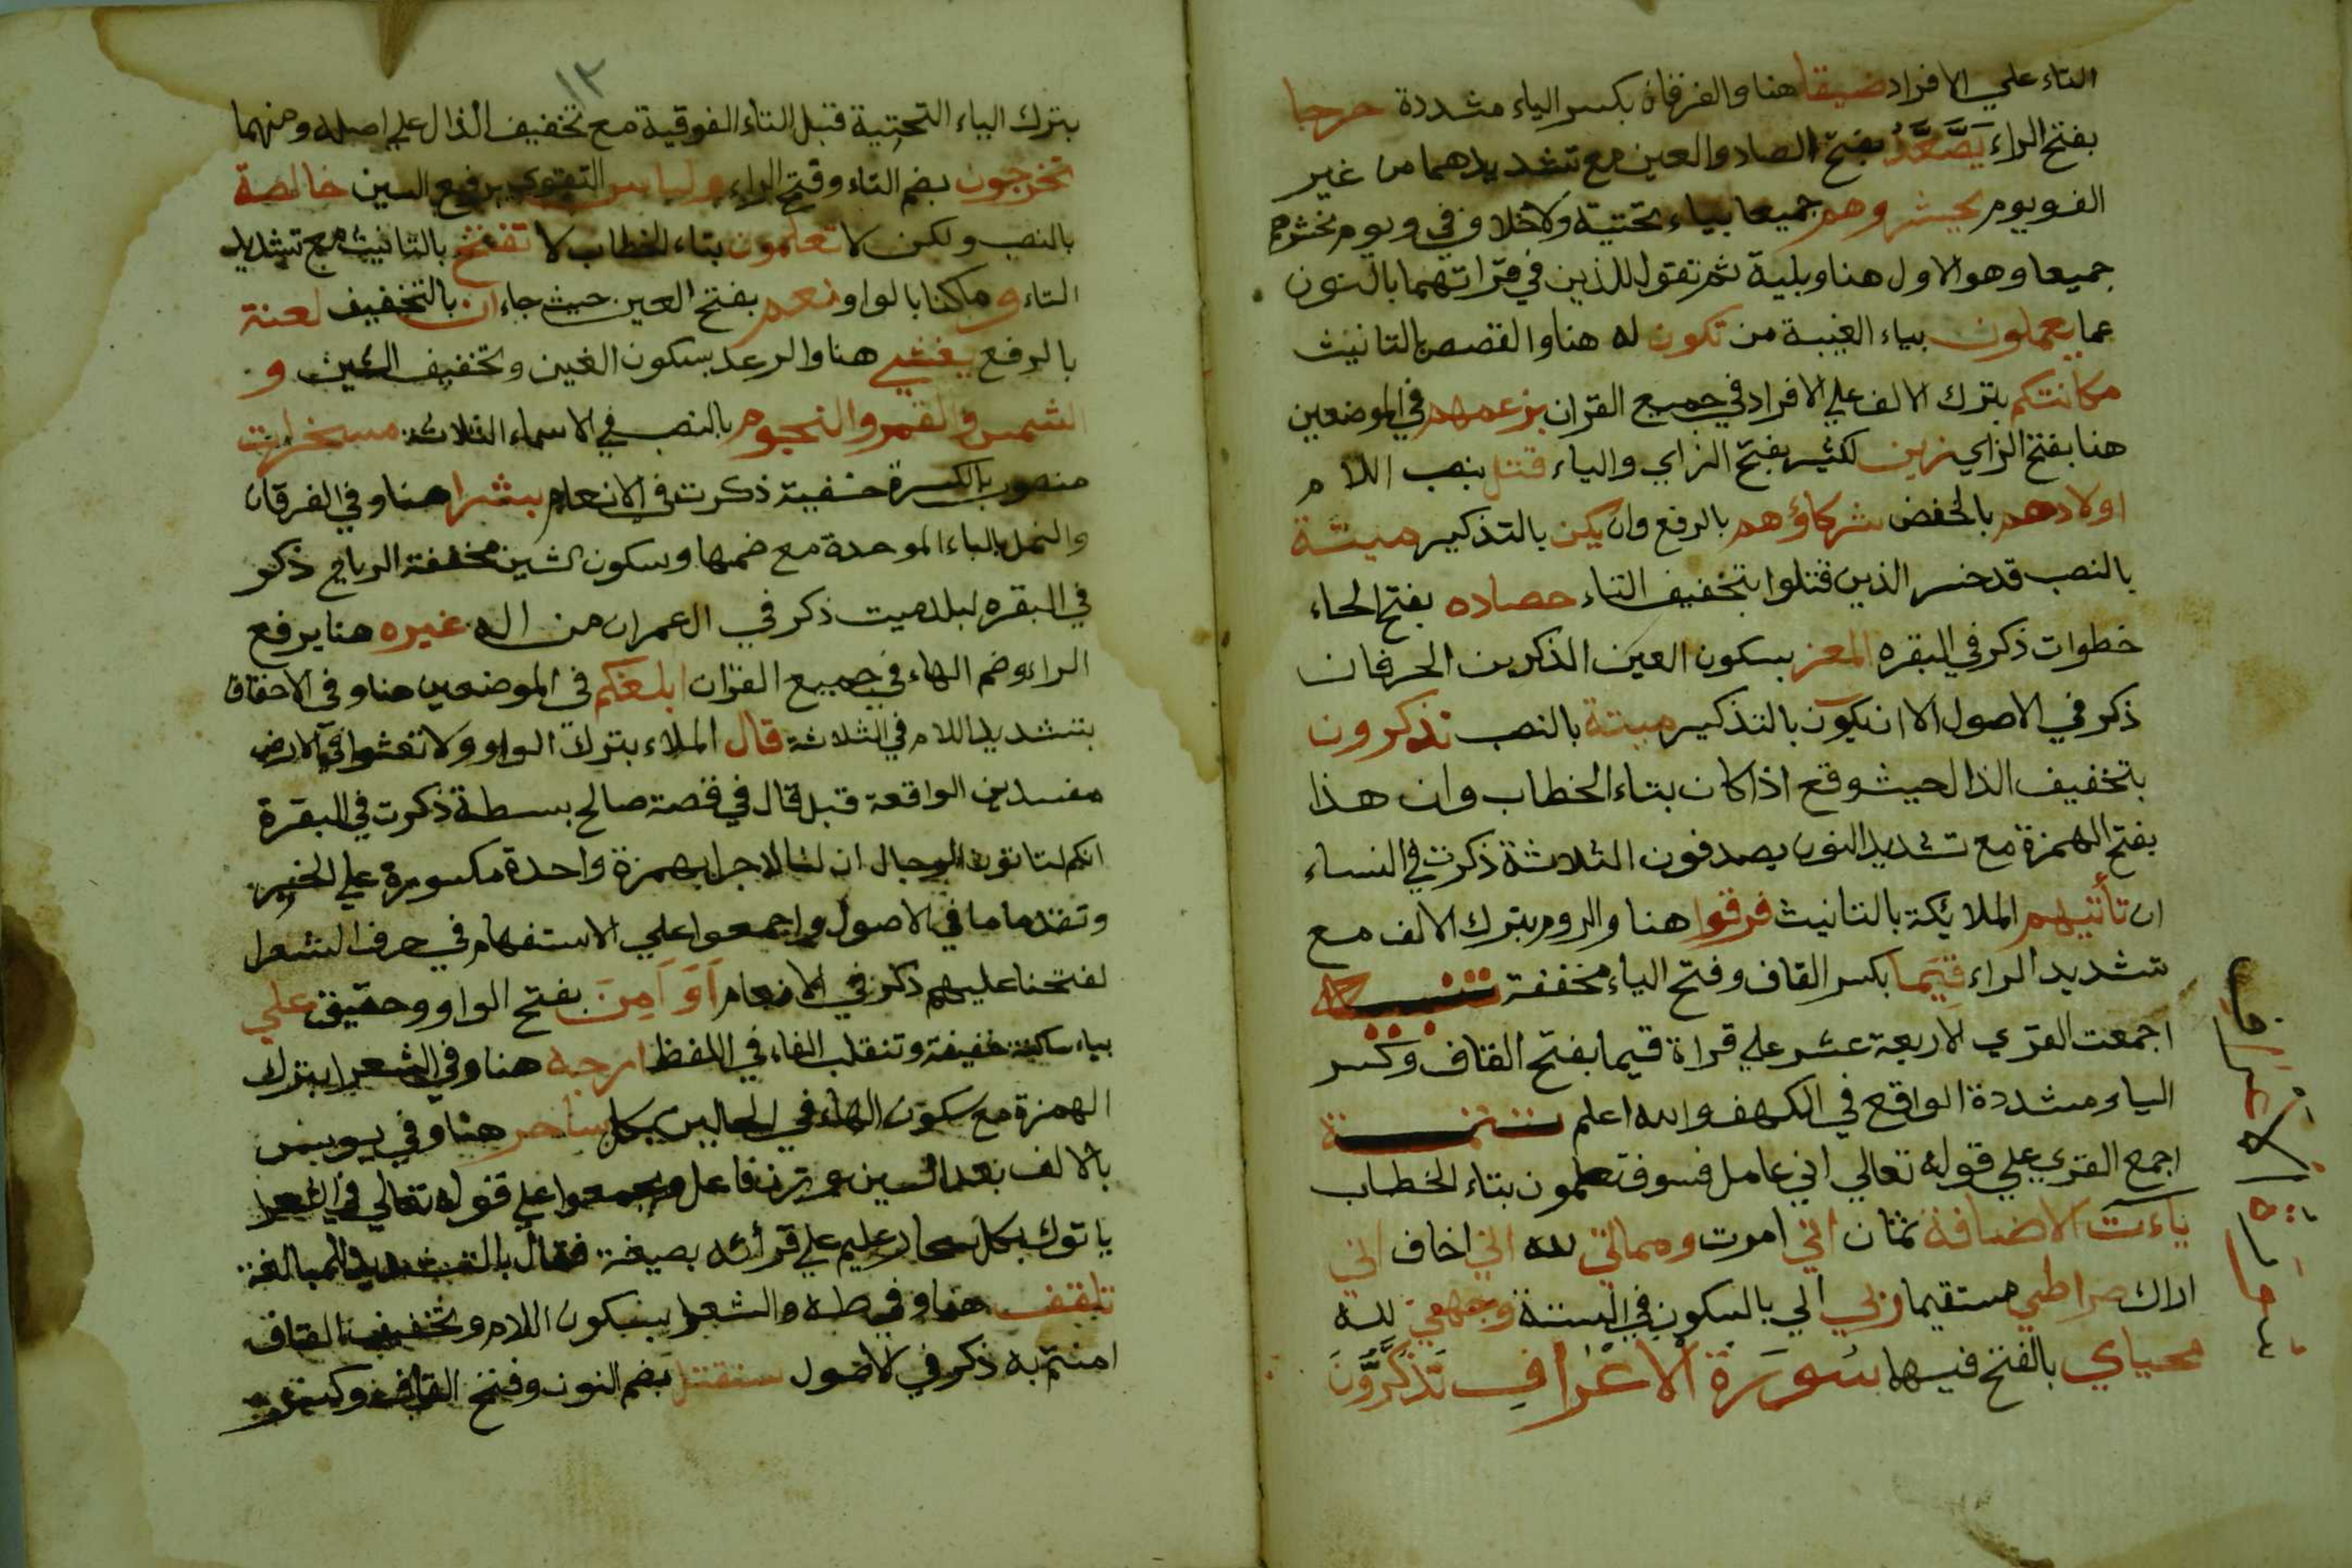 التاء علي الافراد ضيقا هنا والفرقان بكسر الياء مشددة حرجا
بفتح الراء يَصَّعَّدُ بفتح الصاد والعين مع تشديدهما من غير
الف ويوم يحشر وهم جميعا بياء تحتية ولاخلاف في ويوم نحشرهم
جميعا وهو الاول هنا ويليه ثم نقول للذين في قراتهما بالنون
عما يعملون بياء الغيبة من تكون له هنا والقصص بالتانيث
مكانتكم بترك الالف علي الافراد في جميع القران بزعمهم في الموضعين
هنا بفتح الزاي زين لكثير بفتح الزاي والياء قتل بنصب اللام
اولادهم بالخفض شركاؤهم بالرفع وان يكن بالتذكير ميتة
بالنصب قد خسر الذين قتلوا بتخفيف التاء حصاده بفتح الحاء
خطوات ذكر في البقره المعز بسكون العين الذكرين الحرفان
ذكر في الاصول الا ان يكون بالتذكير ميتة بالنصب تذكرون
بتخفيف الذال حيث وقع اذا كان بتاء الخطاب وان هذا
بفتح الهمزة مع تشديد النون يصدفون الثلاثة ذكرت في النساء
ان تأتيهم الملايكة بالتانيث فرقوا هنا والروم بترك الالف مع
تشديد الراء قِيَما بكسر القاف وفتح الياء مخففة تنبيه
اجمعت القري الاربعة عشر علي قراة قيما بفتح القاف وكسر
الياء مشددة الواقع في الكهف والله اعلم تتمة
اجمع القري علي قوله تعالي اني عامل فسوف تعلمون بتاء الخطاب
ياءت الاضافة ثمان اني امرت ومماتي لله اني اخاف اني
اراك صراطي مستقيما ربي الي بالسكون في الستة وجهي لله
محياي بالفتح فيها سورة الاعراف تذكرون
١٢
بترك الياء التحتية قبل التاء الفوقية مع تخفيف الذال علي اصله ومنهما
تخرجون بضم التاء وفتح الراء ولباس التقوي برفع السين خالصة
بالنصب ولكن لا تعلمون بتاء الخطاب لا تفتح بالتانيث مع تشديد
التاء وماكنا بالواو نعم بفتح العين حيث جاء ان بالتخفيف لعنة
بالرفع يغشي هنا والرعد بسكون الغين وتخفيف الشين و
الشمس والقمر والنجوم بالنصب في الاسماء الثلاثة مسخرات
منصوب بالكسرة خفية ذكرت في الانعام بشرا هنا وفي الفرقان
والنمل بالباء الموحدة مع ضمها وسكون الشين مخففة الرياح ذكر
في البقره لبلد ميت ذكر في ال عمران من اله غيره هنا برفع
الراء وضم الهاء في جميع القران ابلغكم في الموضعين هنا وفي الاحقاف
بتشديد اللام في الثلاثة قال الملاء بترك الواو ولا تعثوا في الارض
مفسدين الواقعة قبل قال في قصة صالح بسطة ذكرت في البقرة
انكم لتاتون الرجال ان لنا لاجرا بهمزة واحدة مكسورة علي الخبر
وتقدما ما في الاصول واجمعوا علي الاستفهام في حرف الشعرا
لفتحنا عليهم ذكر في الانعام اَوَ اَمِنَ بفتح الواو وحقيق علي
بياء ساكنة خفيفة وتنقلب الفاء في اللفظ ارجه هنا وفي الشعرا بترك
الهمزة مع سكون الهاء في الحالين بكل ساحر هنا وفي يونس
بالالف بعد السين علي وزن فاعل واجمعوا علي قوله تعالي في الشعرا
ياتوك بكل سحار عليم علي قرأته بصيغة فعال بالتشديد للمبالغة
تلقف هنا وفي طه والشعرا بسكون اللام وتخفيف القاف
امنتم به ذكر في الاصول سنقتل بضم النون وفتح القاف وكسر